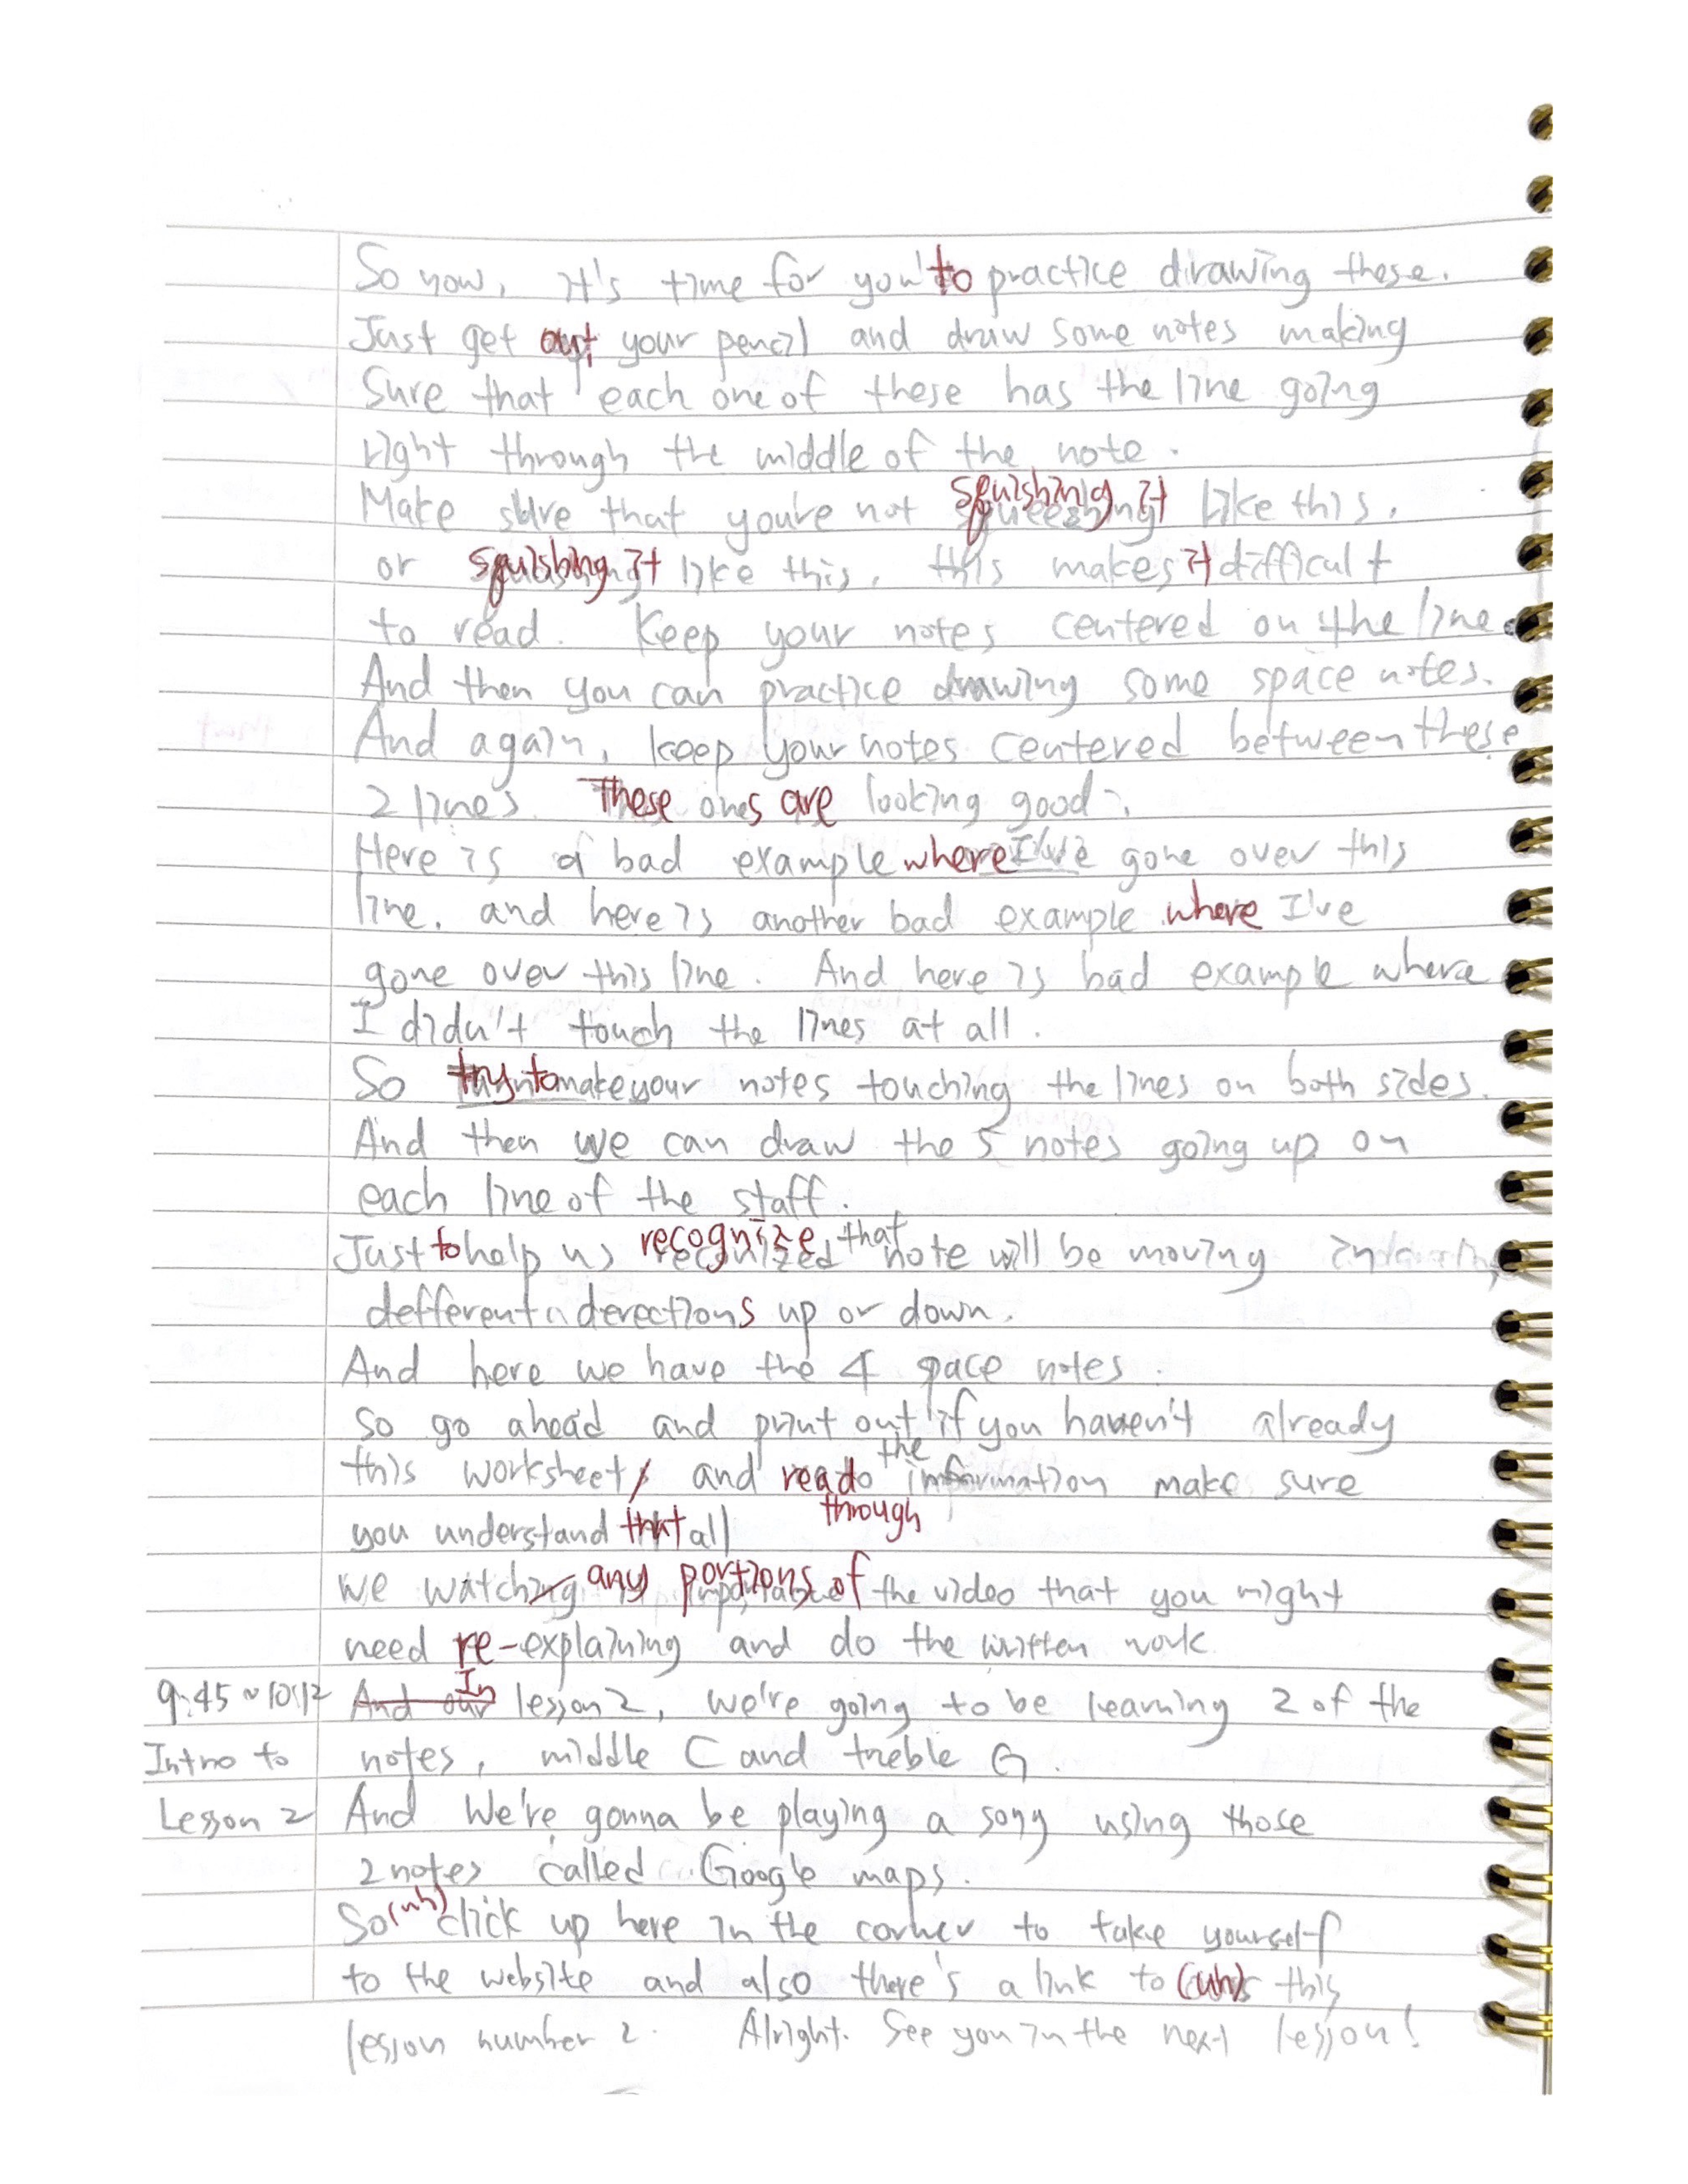 So now, it's time for you to practice drawing these.
Just get out your pencil and draw some notes making
Sure that each one of these has the line going
right through the middle of the note.
Make sure that you're not squishing it like this,
or squishing it like this, this makes it difficult
to read. Keep your notes centered on the line.
And then you can practice drawing some space notes.
And again, keep your notes centered between these
2 lines. These ones are looking good.
Here is a bad example where I've gone over this
line, and here is another bad example where I've
gone over this line. And here is bad example where
I didn't touch the lines at all.
So try to make your notes touching the lines on both sides.
And then we can draw the 5 notes going up on
each line of the staff.
Just to help us recognize that note will be moving in
defferent derections up or down.
And here we have the 4 space notes.
So go ahead and print out if you haven't already
this worksheet and read through the information make sure
you understand that all
we watch any portions of the video that you might
need re-explaining and do the written work
9:45 ~ 10:12 And our In lesson 2, we're going to be learning 2 of the
Intro to notes, middle C and treble G.
Lesson 2 And We're gonna be playing a song using those
2 notes called Google maps.
So (uh) click up here in the corner to take yourself
to the website and also there's a link to (uh) this
lesson number 2. Alright. See you in the next lesson!